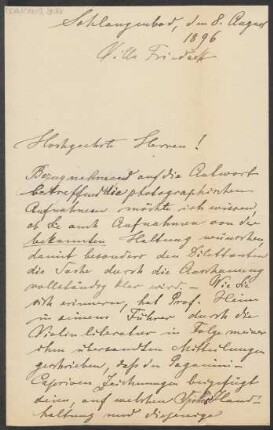 Schlangenbad, den 8. August
1896
Villa Friedach
Hochgeehrte Herren!
Bezugnehmend auf die Antwort
betreffend die photographischen
Aufnahmen möchte ich wissen,
ob Sie auch Aufnahmen von der
bekannten Haltung wünschen,
damit besonders den Dilettanten
die Sache durch die Anschauung
vollständig klar wird. – Wie Sie
sich erinnern, hat Prof. Heim
in seinem Führer durch die
Violin literatur in Folge meiner
ihm übersandten Mitteilungen
geschrieben, daß den Paganini-
Capricen Zeichnungen beigefügt
seien, auf welchen Hand-
haltung und diejenige